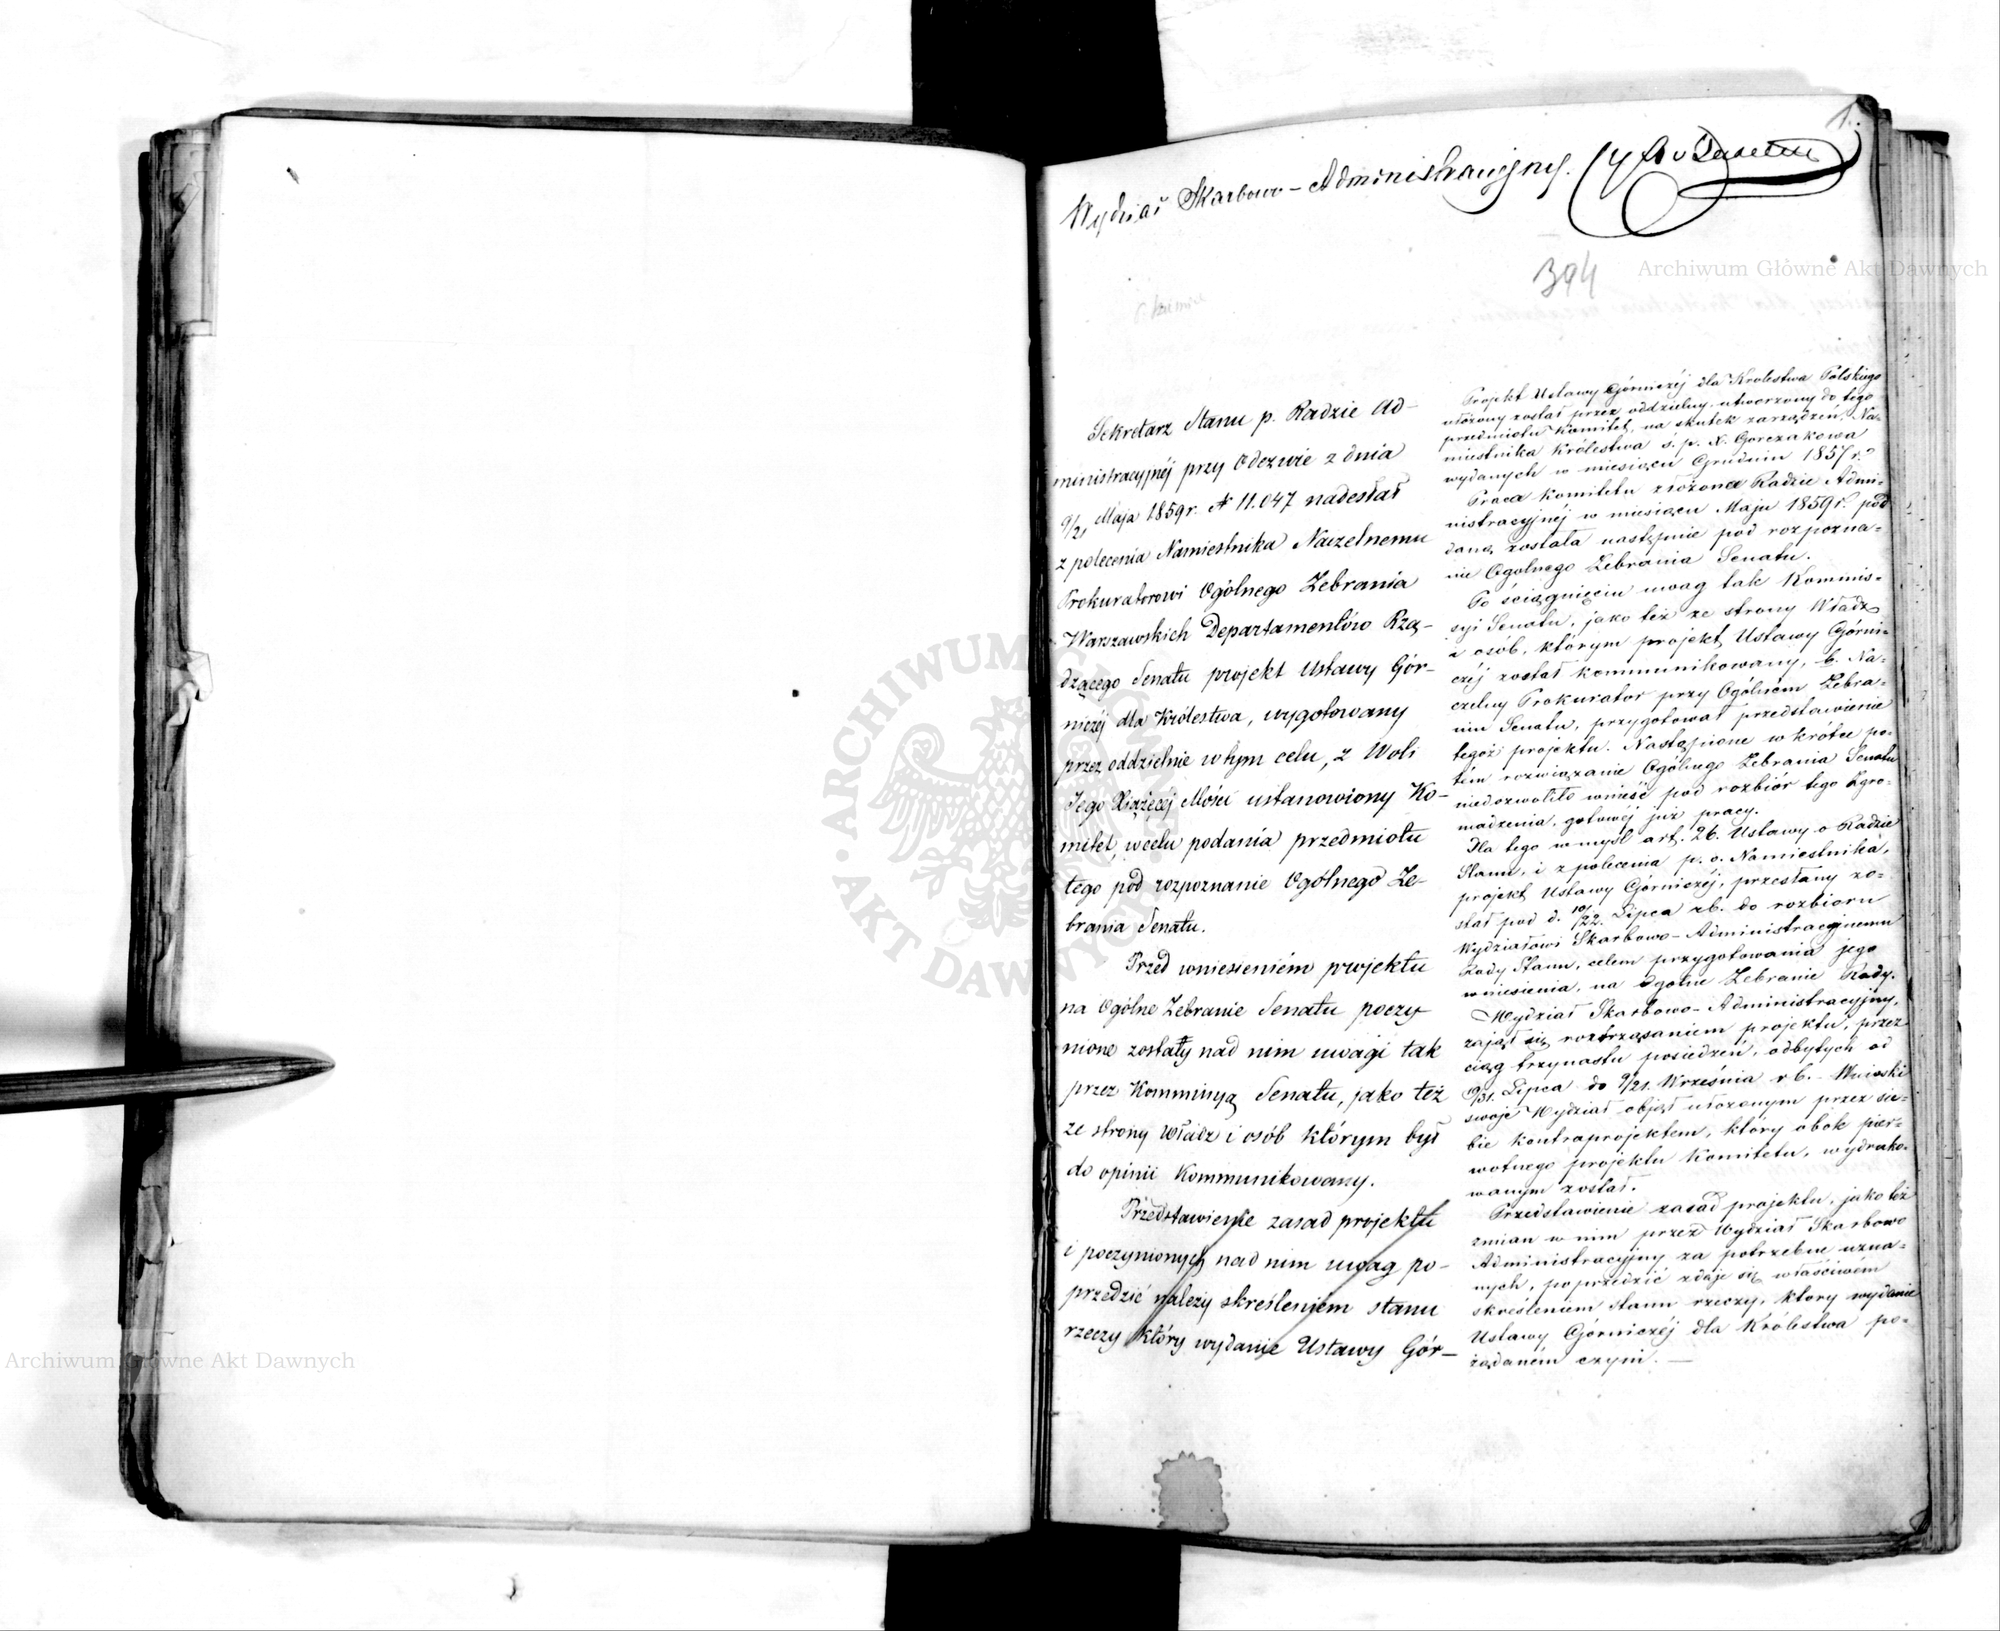 1.
Wydział Skarbowo-Administracyjny.
394
Sekretarz Stanu p. Radzie Ad-
ministracyjnéj przy Odezwie z dnia
9/21 Maja 1859 r. N 11.047 nadesłał
z polecenia Namiestnika Naczelnemu
Prokuratorowi Ogólnego Zebrania
Warszawskich Departamentów Rzą-
dzącego Senatu projekt Ustawy Gór-
niczéj dla Królestwa, wygotowany
przez oddzielnie w tym celu, z Woli
Jego Xiążęcéj Mości ustanowiony Ko-
mitet, w celu podania przedmiotu
tego pod rozpoznanie Ogólnego Ze-
brania Senatu.
Przed wniesieniém projektu
na Ogólne Zebranie Senatu poczy-
nione zostały nad nim uwagi tak
przez Kommissyą Senatu, jako też
ze strony Władz i osób którym był
do opinii kommunikowany.
Przedstawienie zasad projektu
i poczynionych nad nim uwag po-
przedzić należy skreśleniem stanu
rzeczy który wydanie Ustawy Gór-
Projekt Ustawy Górniczéj dla Królestwa Polskiego
ułożony został przez oddzielny, utworzony do tego
przedmiotu Komitet, na skutek zarządzeń Na-
miestnika Królestwa ś. p. X. Gorczakowa
wydanych w miesiącu Grudniu 1857 r.
Praca Komitetu złożona Radzie Admi-
nistracyjnéj w miesiącu Maju 1859 r. pod
daną została następnie pod rozpozna-
nie Ogólnego Zebrania Senatu.
Po ściągnięciu uwag tak Kommis-
syi Senatu, jako też ze strony Władz
i osób, którym projekt Ustawy Górni-
czéj został kommunikowany, b. Na-
czelny Prokurator przy Ogólném Zebra-
niu Senatu, przygotował przedstawienie
tegoż projektu. Nastąpione wkrótce po-
tém rozwiązanie Ogólnego Zebrania Senatu
niedozwoliło wnieść pod rozbiór tego Zgro-
madzenia, gotowéj już pracy.
Dla tego w myśl art. 26. Ustawy o Radzie
Stanu, i z polecenia p. o. Namiestnika,
projekt Ustawy Górniczéj, przesłany zo-
stał pod d. 10/22. Lipca rb. do rozbioru
Wydziałowi Skarbowo-Administracyjnemu
Rady Stanu, celem przygotowania jego
wniesienia, na Ogólne Zebranie Rady.
Wydział Skarbowo-Administracyjny,
zajął się roztrząsaniem projektu, przez
ciąg trzynastu posiedzeń, odbytych od
19/31. Lipca do 9/21. Września r b. Wnioski
swoje Wydział objął ułożonym przez sie-
bie kontraprojektem, który obok pier-
wotnego projektu Komitetu, wydruko-
wanym został.
Przedstawienie zasad projektu, jako też
zmian w nim przez Wydział Skarbowo
Administracyjny za potrzebne uzna-
nych, poprzedzić zdaje się właściwém
skreśleniem stanu rzeczy, który wydanie
Ustawy Górniczéj dla Królestwa po-
żądaném czyni. —
Archiwum Główne Akt Dawnych
Archiwum Główne Akt Dawnych
ARCHIWUM GŁÓWNE AKT DAWNYCH